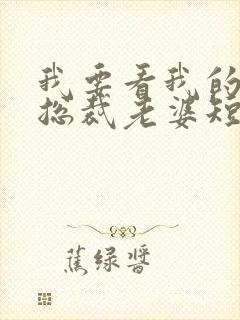 我要看我的
总裁老婆短
蕉绿酱